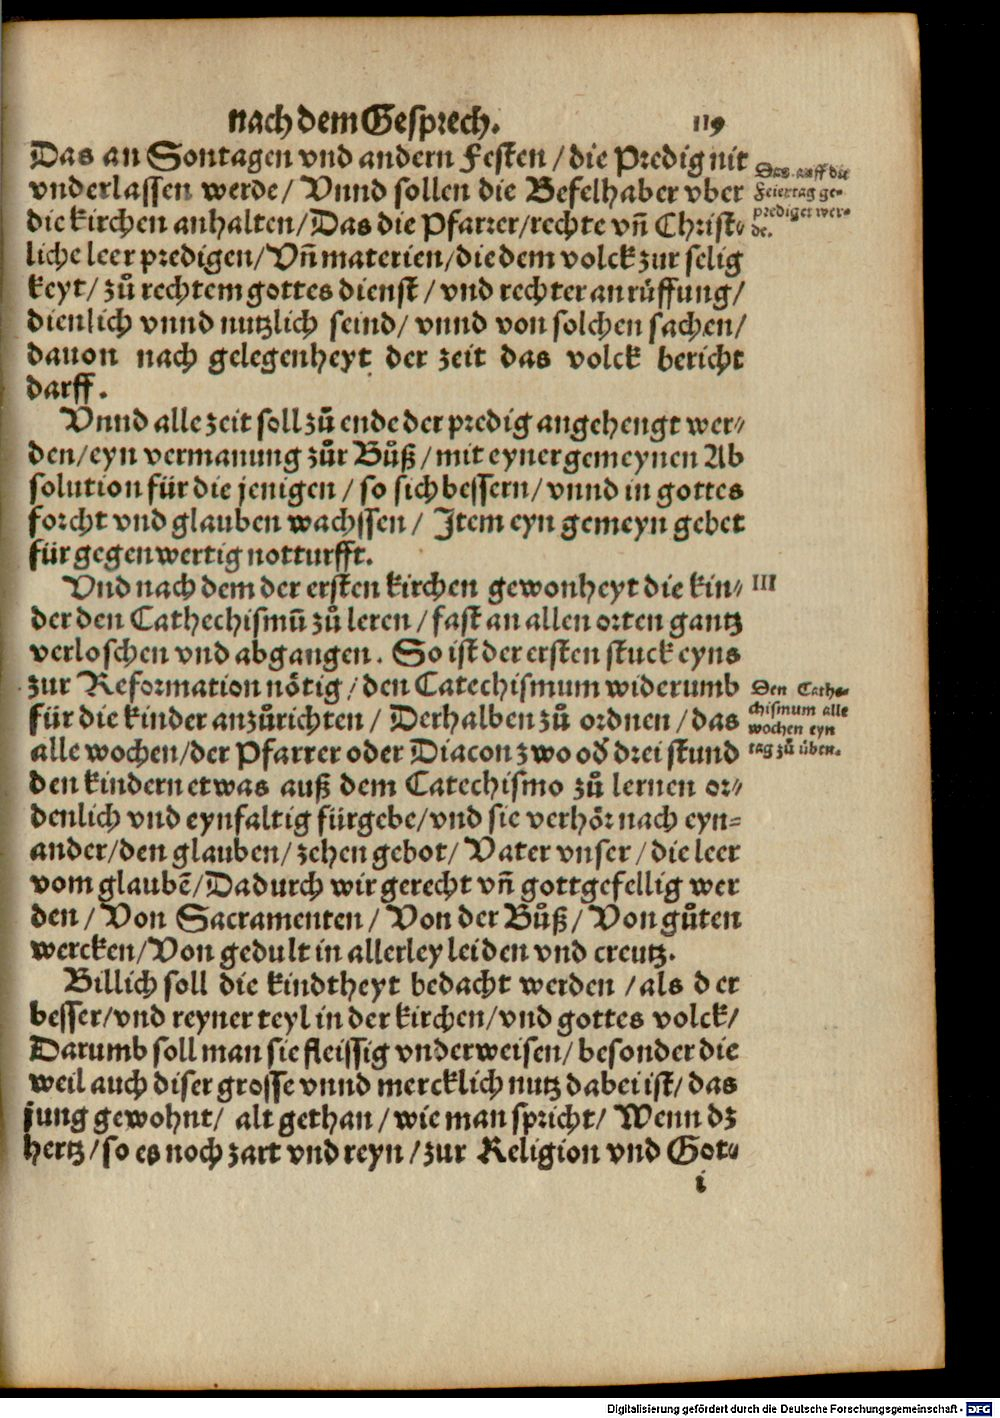 nach dem Gesprech. 119
Das an Sontagen vnd andern Festen / die Predig nit
vnderlassen werde / Vnnd sollen die Befelhaber vber
die kirchen anhalten / Das die Pfarrer / rechte vñ Christ⸗
liche leer predigen / Vñ materien / die dem volck zur selig
keyt / zů rechtem gottes dienst / vnd rechter anrüffung /
dienlich vnnd nutzlich seind / vnnd von solchen sachen /
dauon nach gelegenheyt der zeit das volck bericht
darff.
Das auff die
Feiertag ge⸗
prediget wer⸗
de.
Vnnd alle zeit soll zů ende der predig angehengt wer⸗
den / eyn vermanung zůr Bůß / mit eyner gemeynen Ab
solution für die jenigen / so sich bessern / vnnd in gottes
forcht vnd glauben wachssen / Item eyn gemeyn gebet
für gegenwertig notturfft.
Vnd nach dem der ersten kirchen gewonheyt die kin⸗
III
der den Cathechismū zů leren / fast an allen orten gantz
verloschen vnd abgangen. So ist der ersten stuck eyns
zur Reformation nötig / den Catechismum widerumb
für die kinder anzůrichten / Derhalben zů ordnen / das
alle wochen / der Pfarrer oder Diacon zwo od̛ drei stund
den kindern etwas auß dem Catechismo zů lernen or⸗
denlich vnd eynfaltig fürgebe / vnd sie verhör nach eyn⸗
ander / den glauben / zehen gebot / Vater vnser / die leer
vom glaubē / Dadurch wir gerecht vñ gottgefellig wer
den / Von Sacramenten / Von der Bůß / Von gůten
wercken / Von gedult in allerley leiden vnd creutz.
Den Cathe⸗
chismum alle
wochen eyn
tag zů üben.
Billich soll die kindtheyt bedacht werden / als der
besser / vnd reyner teyl in der kirchen / vnd gottes volck /
Darumb soll man sie fleissig vnderweisen / besonder die
weil auch diser grosse vnnd mercklich nutz dabei ist / das
jung gewohnt / alt gethan / wie man spricht / Wenn dz
hertz / so es noch zart vnd reyn / zur Religion vnd Got⸗
i
Digitalisierung gefördert durch die Deutsche Forschungsgemeinschaft - DFG